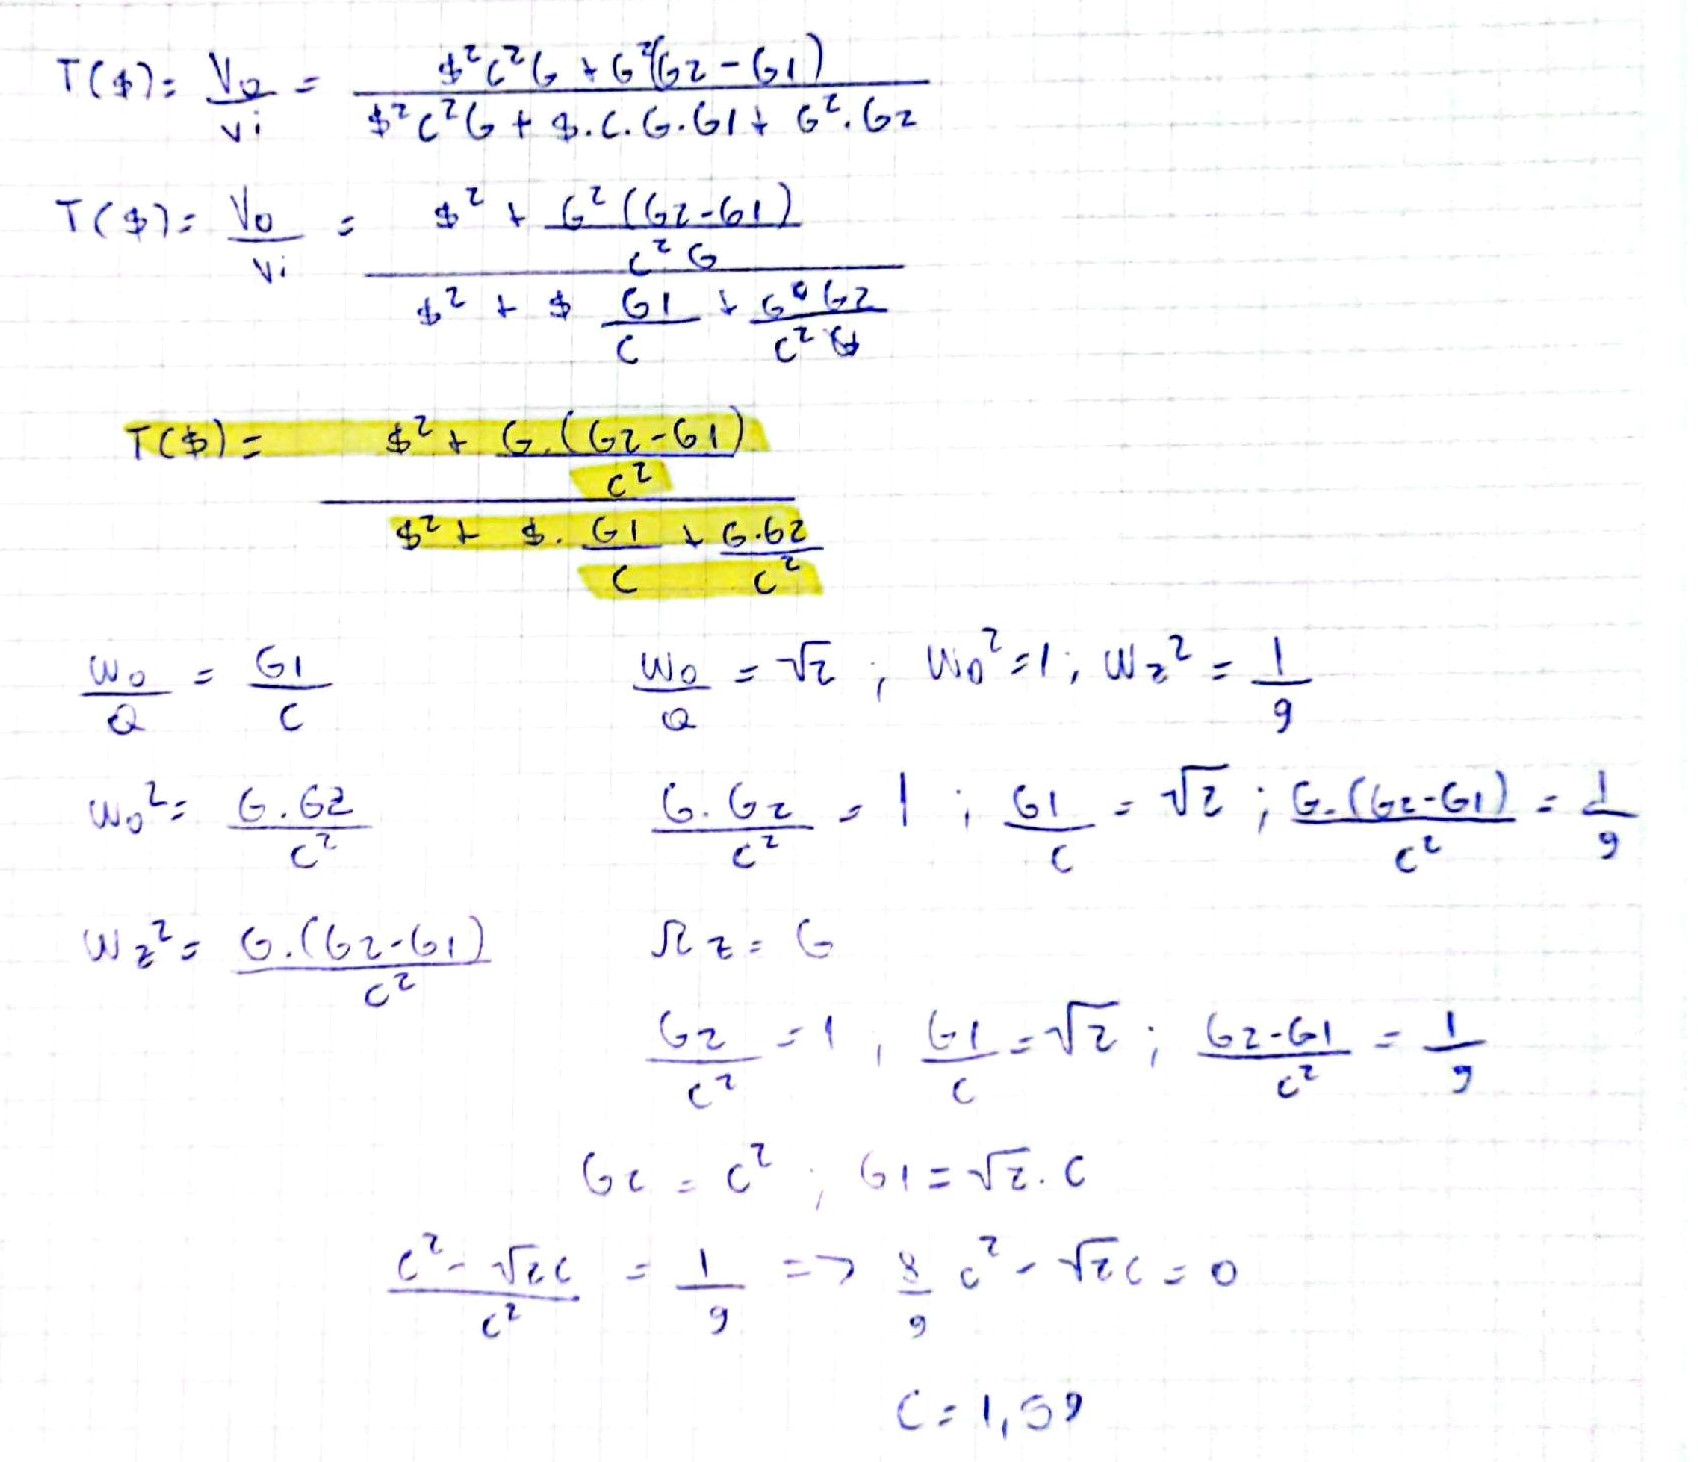 T($) = Vo/Vi = ($²C²G + G²(G2 - G1)) / ($²C²G + $.C.G.G1 + G².G2)
T($) = Vo/Vi = ($² + G²(G2-G1)/C²G) / ($² + $ G1/C + G² G2/C²G)
T($) = ($² + G.(G2-G1)/C²) / ($² + $. G1/C + G.G2/C²)
Wo/Q = G1/C    Wo/Q = √2 ; Wo² = 1 ; Wz² = 1/9
Wo² = G.G2/C²    G.G2/C² = 1 ; G1/C = √2 ; G.(G2-G1)/C² = 1/9
Wz² = G.(G2-G1)/C²    Ωz = G
G2/C² = 1 ; G1/C = √2 ; G2-G1/C² = 1/9
G2 = C² ; G1 = √2.C
C² - √2C/C² = 1/9 => 8/9 C² - √2C = 0
C = 1,59